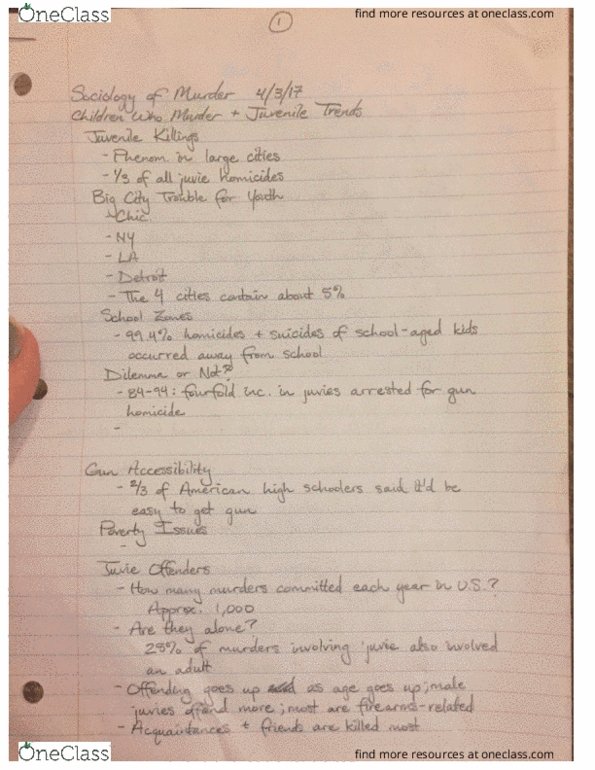 OneClass
find more resources at oneclass.com
1
Sociology of Murder 4/3/17
Children Who Murder + Juvenile Trends
Juvenile Killings
- Phenom in large cities
- 1/3 of all juvie homicides
Big City Trouble for Youth
- Chic.
- NY
- LA
- Detroit
- The 4 cities contain about 5%
School Zones
- 99.4% homicides + suicides of school-aged kids
occurred away from school
Dilemma or Not?
- 84-94: fourfold inc. in juvies arrested for gun
homicide
-
Gun Accessibility
- 2/3 of American high schoolers said it'd be
easy to get gun
Poverty Issues
-
Juvie Offenders
- How many murders committed each year in U.S.?
Approx. 1,000
- Are they alone?
25% of murders involving juvie also involved
an adult
- Offending goes up as age goes up; male
juvies offend more; most are firearms-related
- Acquaintances + friends are killed most
OneClass
find more resources at oneclass.com